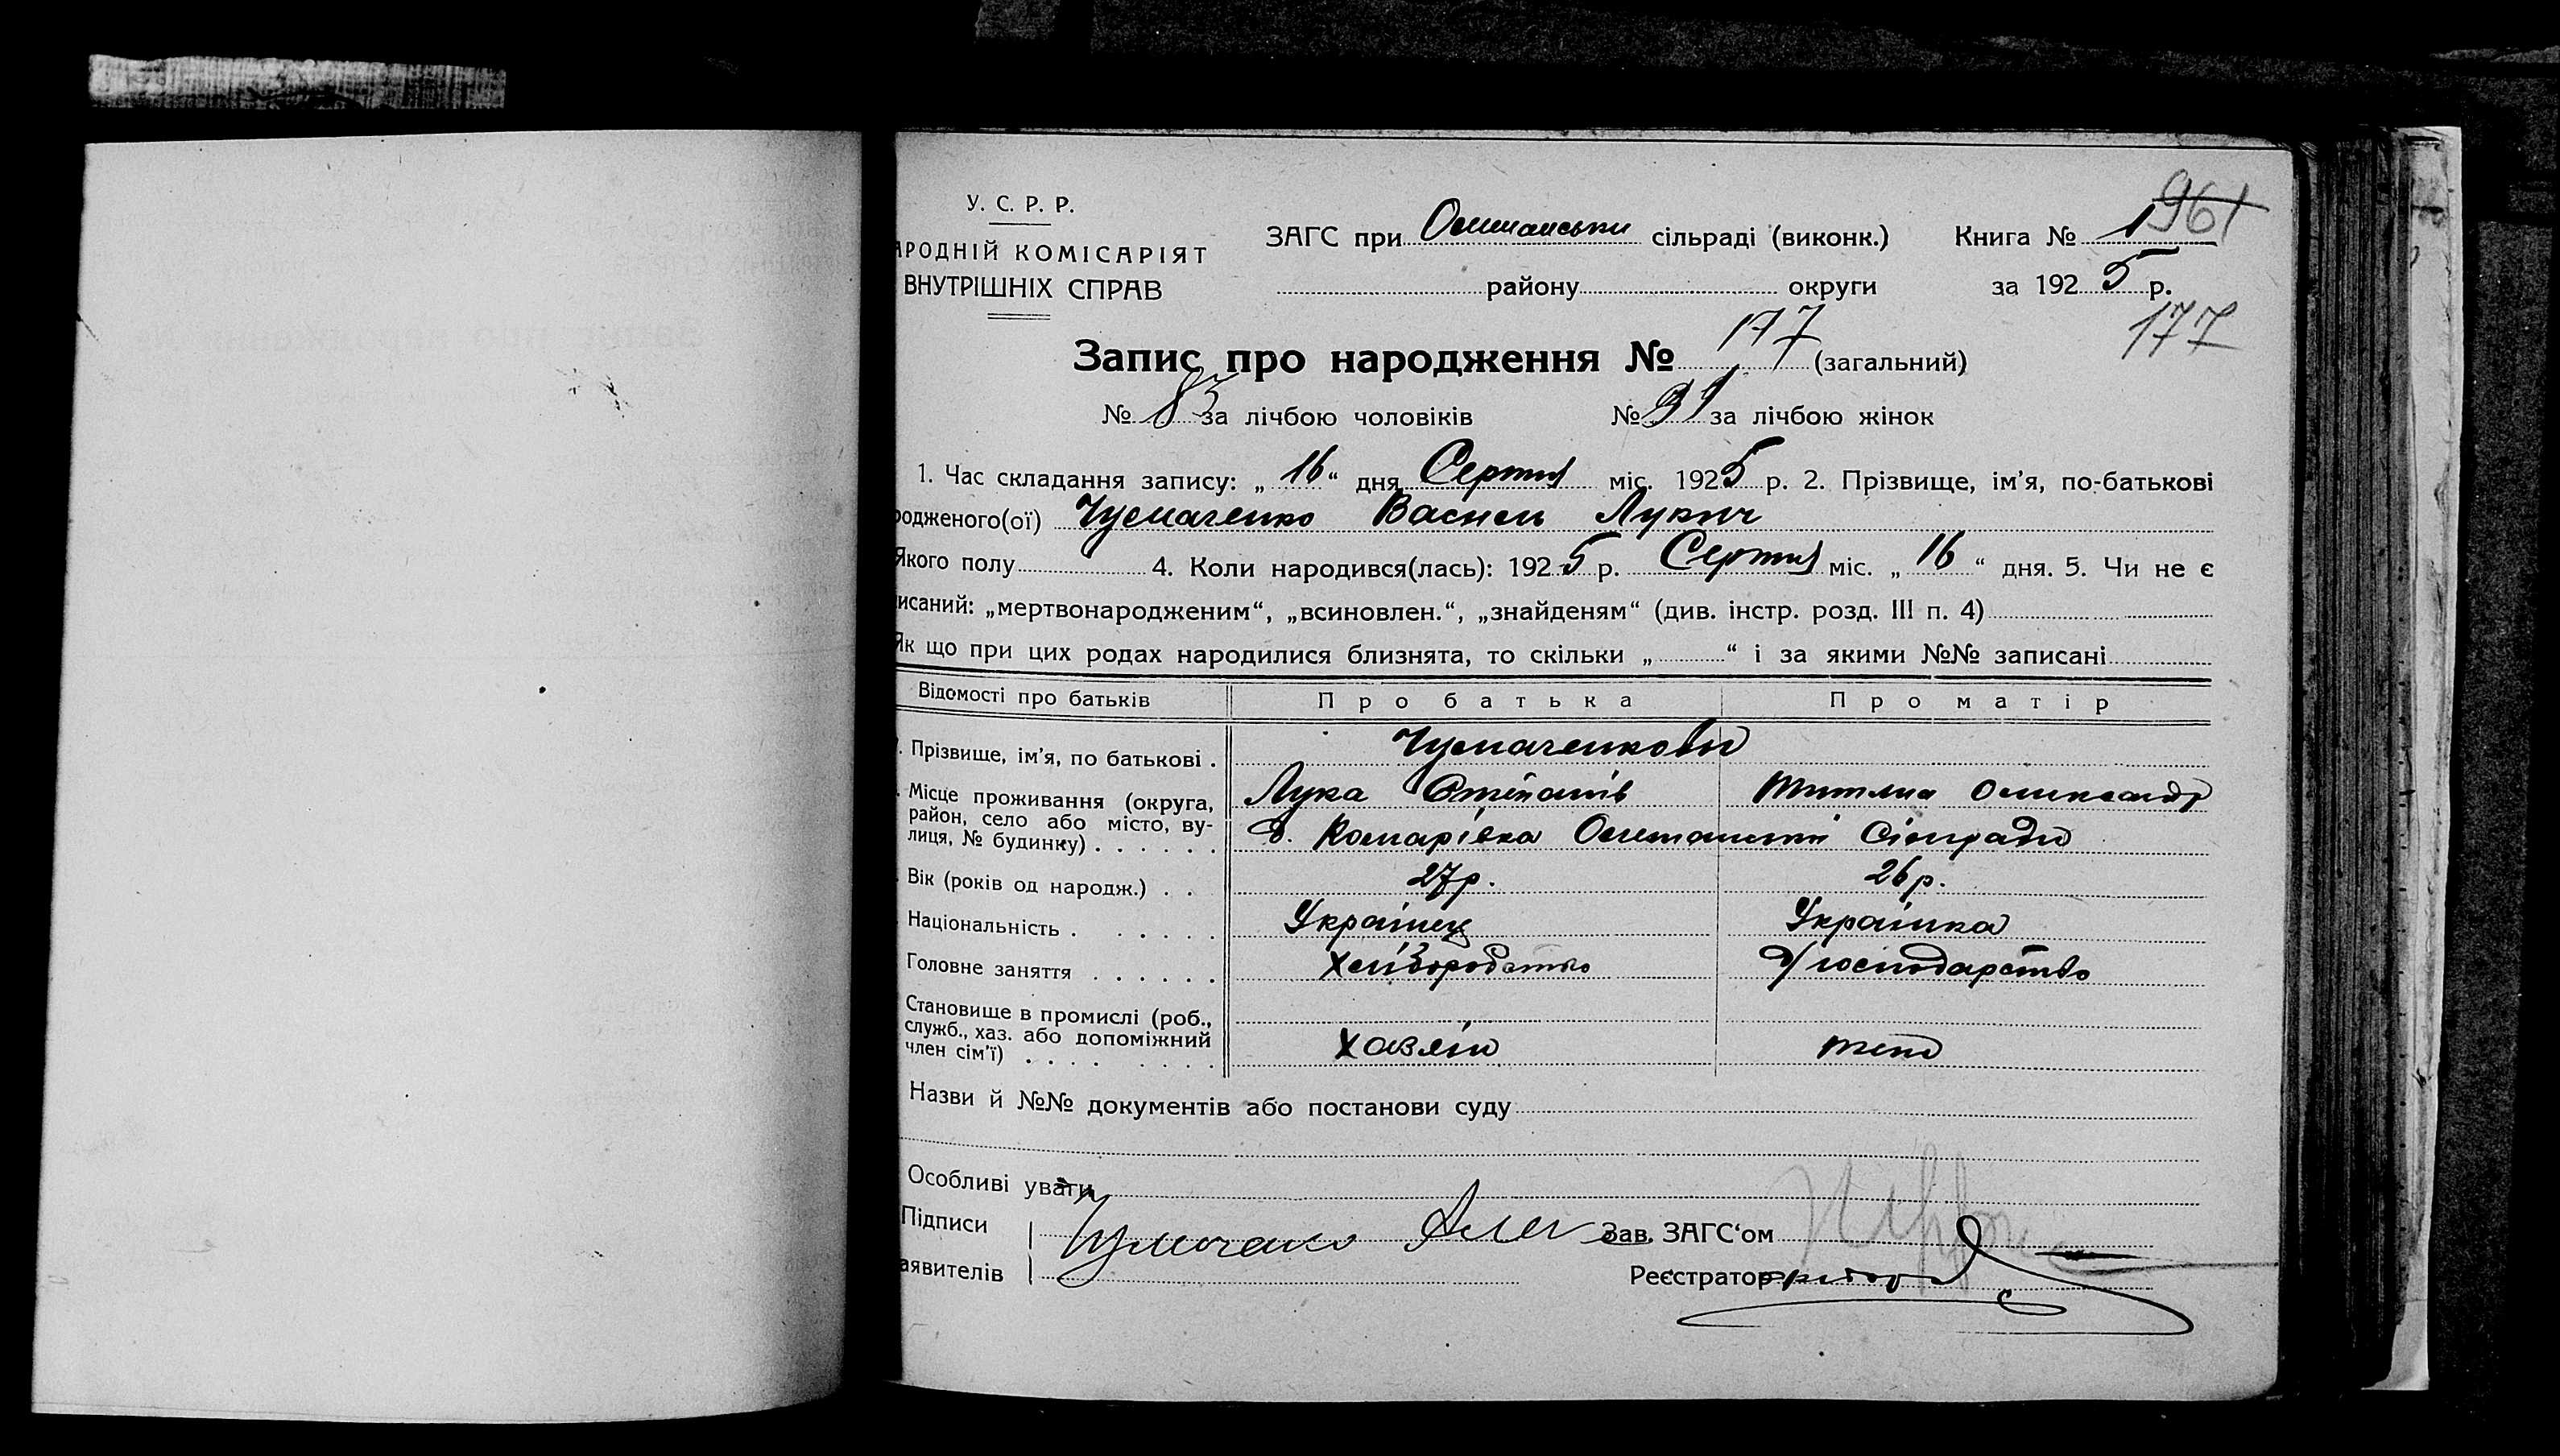 961
У. С. Р. Р.
АРОДНІЙ КОМІСАРІЯТ
ВНУТРІШНІХ СПРАВ
ЗАГС при сільраді (виконк.) Книга № 1
району округи за 1925 р.
177
Запис про народження № 177 (загальний)
№ 83 за лічбою чоловіків № 91 за лічбою жінок
1. Час складання запису: „ 16 “ дня Серпня міс. 1925 р. 2. Прізвище, ім’я, по-батькові
родженого(ої) Чумаченко Василь Лукич
Якого полу 4. Коли народився(лась): 1925 р. Серпня міс. „ 16 “ дня. 5. Чи не є
исаний: „мертвонародженим“, „всиновлен.“, „знайденям“ (див. інстр. розд. III п. 4)
Як що при цих родах народилися близнята, то скільки „ “ і за якими №№ записані
Відомості про батьків Про батька Про матір
Прізвище, ім’я, по батькові . Чумаченкови
Лука Степанів Олександр
Місце проживання (округа, район, село або місто, вулиця, № будинку) . . . . . . Комарівка Сільради
Вік (років од народж.) . . 27р. 26р.
Національність . . . . . . Українец Українка
Головне заняття . . . . . . Хліборобство д/господарство
Становище в промислі (роб.,
служб., хаз. або допоміжний
член сім’ї) . . . . . . . . Хазяїн
Назви й №№ документів або постанови суду
Особливі уваги
Підписи Чумаченко Зав. ЗАГС‘ом
аявителів Реєстратор